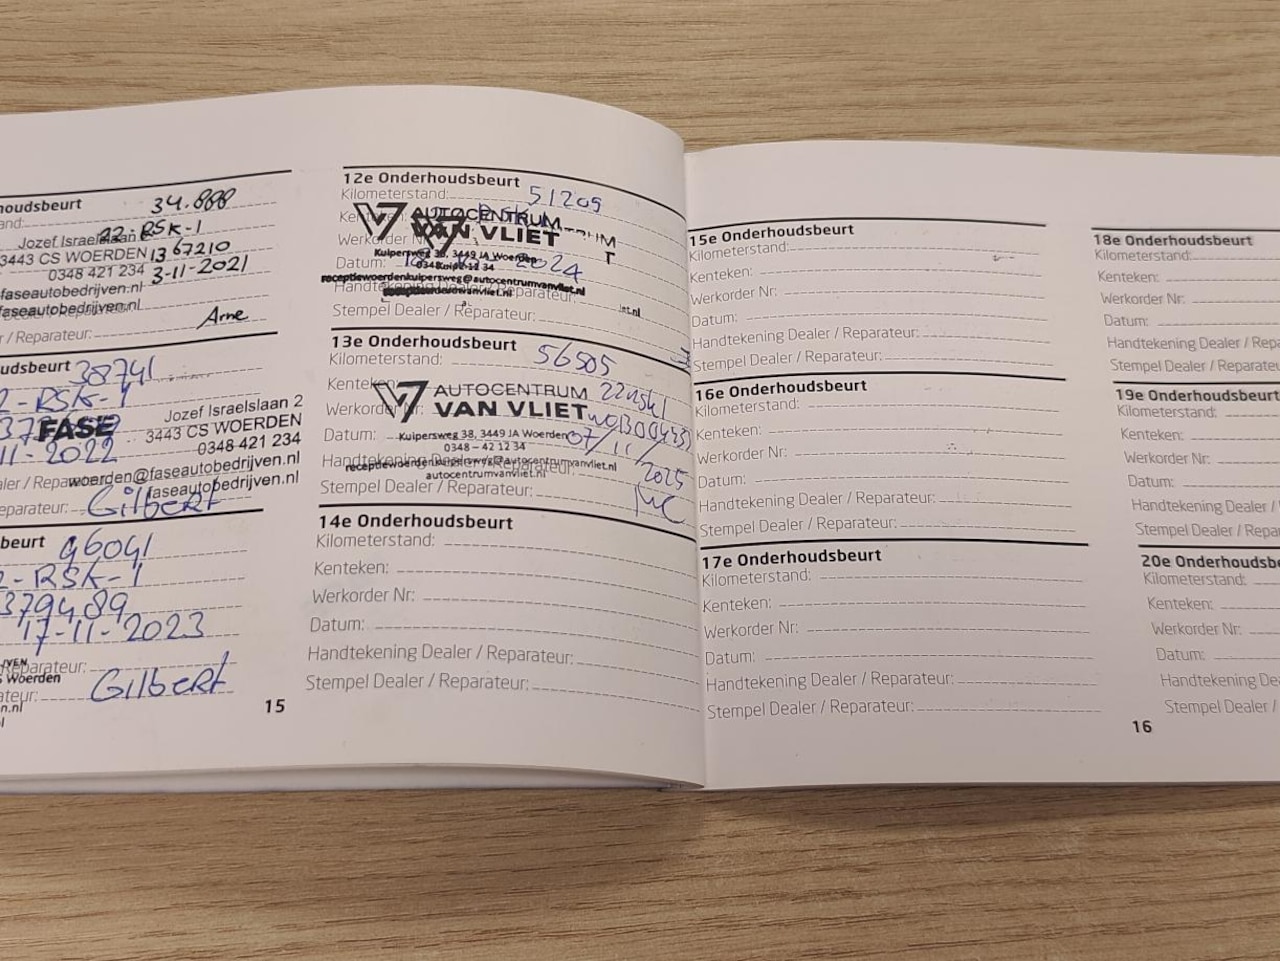 houdsbeurt 34.888
and:
22-RSK-1
Jozef Israelslaan 2
3443 CS WOERDEN 1367210
0348 421 234 3-11-2021
faseautobedrijven.nl
faseautobedrijven.nl
r / Reparateur: Arne
udsbeurt 38741
2-RSK-1
FASE
Jozef Israelslaan 2
3443 CS WOERDEN
0348 421 234
11-2022
woerden@faseautobedrijven.nl
faseautobedrijven.nl
eparateur: Gilbert
beurt 46041
2-RSK-1
379489
17-11-2023
Reparateur:
Woerden
ateur: Gilbert
n.nl
15
12e Onderhoudsbeurt
Kilometerstand: 51209
Kenteken:
AUTOCENTRUM
VAN VLIET
Werkorder Nr:
Kuipersweg 38, 3449 JA Woerden
Datum: 2024
receptiewoerdenkuipersweg@autocentrumvanvliet.nl
Handtekening Dealer / Reparateur:
Stempel Dealer / Reparateur:
13e Onderhoudsbeurt
Kilometerstand: 56505
Kenteken: 22rsk1
AUTOCENTRUM
VAN VLIET
Werkorder Nr:
Kuipersweg 38, 3449 JA Woerden
Datum: 07/11/2025
0348 – 42 12 34
Handtekening Dealer / Reparateur:
receptiewoerdenkuipersweg@autocentrumvanvliet.nl
autocentrumvanvliet.nl
Stempel Dealer / Reparateur:
14e Onderhoudsbeurt
Kilometerstand:
Kenteken:
Werkorder Nr:
Datum:
Handtekening Dealer / Reparateur:
Stempel Dealer / Reparateur:
15e Onderhoudsbeurt
Kilometerstand:
Kenteken:
Werkorder Nr:
Datum:
Handtekening Dealer / Reparateur:
Stempel Dealer / Reparateur:
16e Onderhoudsbeurt
Kilometerstand:
Kenteken:
Werkorder Nr:
Datum:
Handtekening Dealer / Reparateur:
Stempel Dealer / Reparateur:
17e Onderhoudsbeurt
Kilometerstand:
Kenteken:
Werkorder Nr:
Datum:
Handtekening Dealer / Reparateur:
Stempel Dealer / Reparateur:
18e Onderhoudsbeurt
Kilometerstand:
Kenteken:
Werkorder Nr:
Datum:
Handtekening Dealer / Repa
Stempel Dealer / Reparateu
19e Onderhoudsbeurt
Kilometerstand:
Kenteken:
Werkorder Nr:
Datum:
Handtekening Dealer /
Stempel Dealer / Repar
20e Onderhoudsbe
Kilometerstand:
Kenteken:
Werkorder Nr:
Datum:
Handtekening Deale
Stempel Dealer /
16